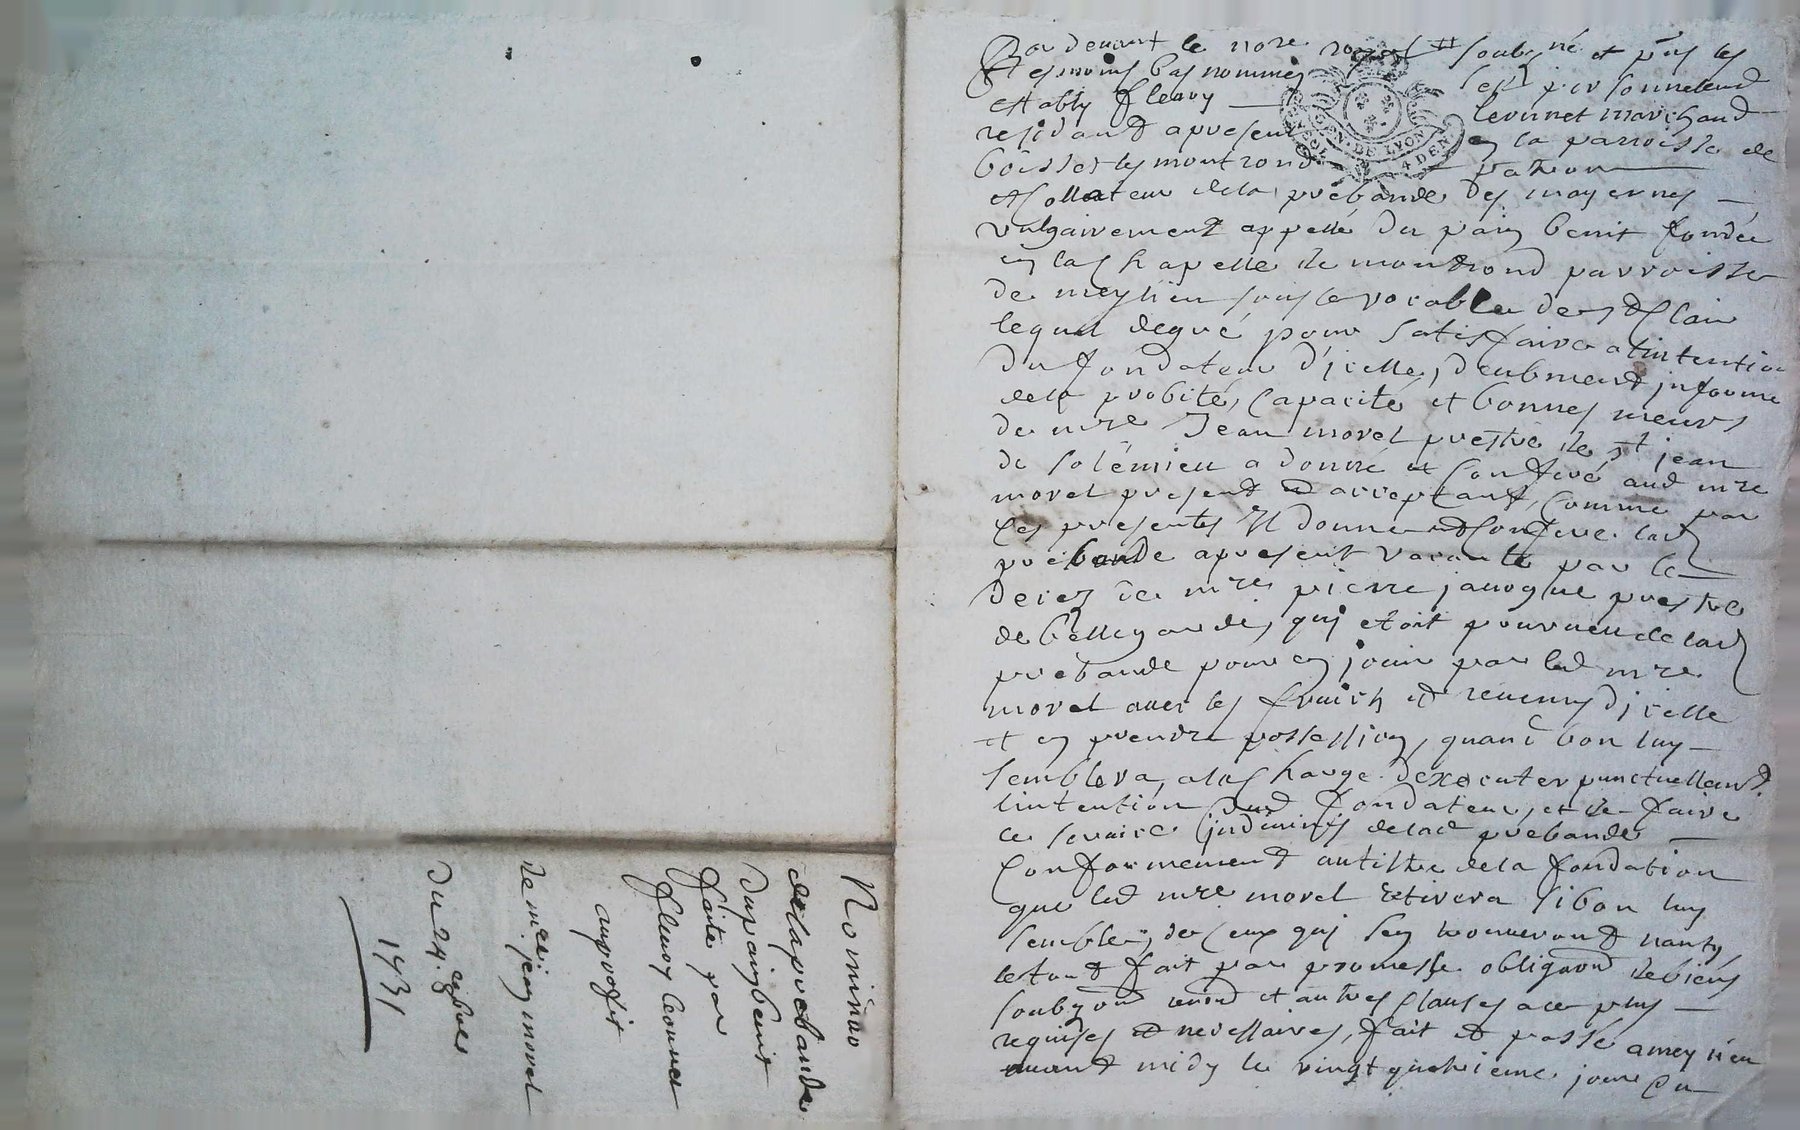 Par devant le nore royal soubs né et pns les
tesmoins bas nommés fut personnelemt
estably fleury leounet marchand
residant apresent en la parroisse de
boisset les montrond patron
et collateur dela prebande des mayernes
vulgairement appellé du pain benit fondée
en la chapelle de montrond parroisse
de meylieu sous le vocable de st Clair
lequel degré pour satisfaire a lintention
du fondateur d'icelle, deubment informé
dela probité, capacité et bonnes meurs
de mre Jean morel prestre de st jean
de solémieu a donné et conferé aud mre
morel present et acceptant, comme par
ces presentes Il donne et confere lad
prebande apresent vacante par le
deces de mre pierre janogue prestre
de bellegarde, qui etoit pourveu de lad
prebande pour en jouir par led mre
morel avec les fruicts et revenus d'icelle
et en prendre possession, quand bon luy
semblera, a la charge dexecuter punctuellemt
lintention dud fondateur, et de faire
le service de lad prebande
Conformement au tiltre dela fondation
que led mre morel retirera si bon luy
semble, de ceux qui sen trouveront nantis
le tout fait par promesse obligaon de biens
soubzon renon et autres clauses a ce plus
requises et necessaires, fait et passé a meylieu
avant midy le vingt quatrieme jour du
Nominão
dela prebande
du pain benit
faite par
fleury leounet
au profit
de mre jean morel
du 24e
1731
GEN. DE LYON
4 DEN.